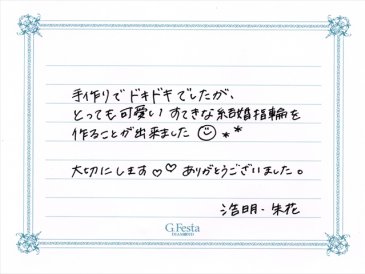 手作りでドキドキでしたが、
とっても可愛いすてきな結婚指輪を
作ることが出来ました☺**
大切にします♡♡ ありがとうございました。
浩明・朱花
G.Festa